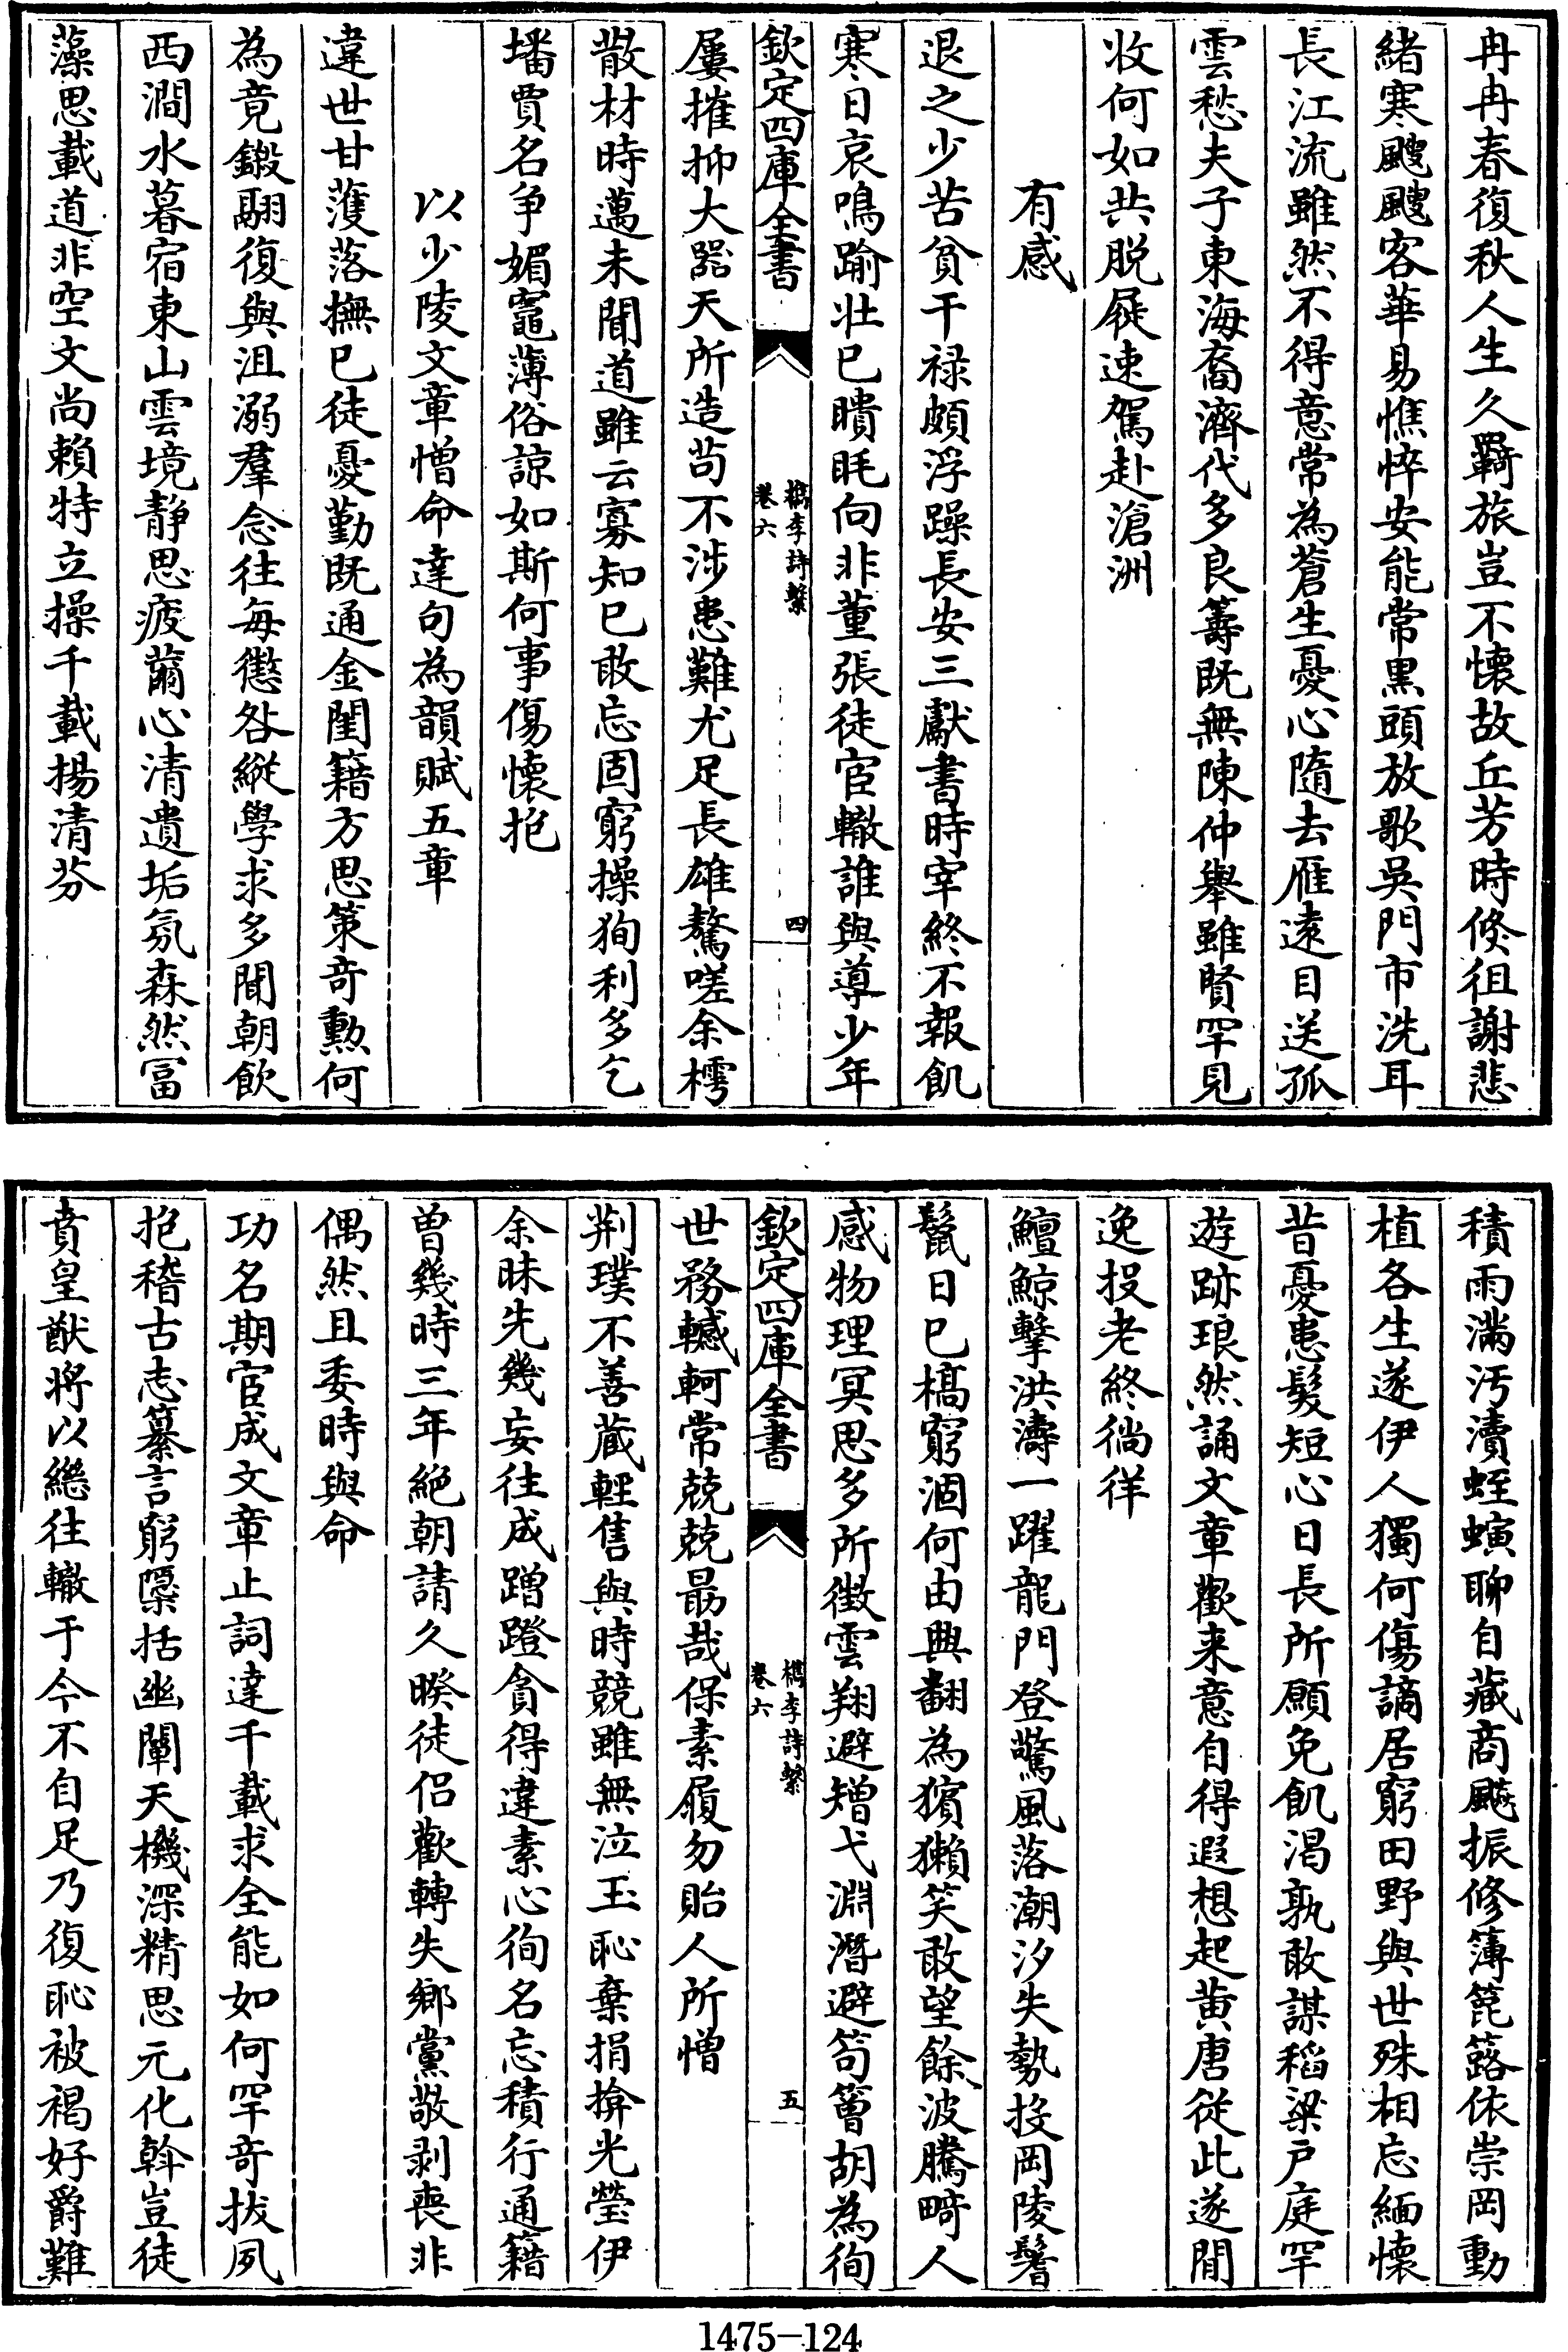 冉冉春復秋人生久羇旅豈不懐故丘芳時倐徂謝悲
緒寒颼颼客華易憔悴安能常黒頭放歌吳門市洗耳
長江流雖然不得意常為蒼生憂心隨去雁遠目送孤
雲愁夫子東海裔濟代多良籌既無陳仲舉雖賢罕見
收何如共脱屣速駕赴滄洲
有感
退之少苦貧干禄頗浮躁長安三獻書時宰終不報飢
寒日哀鳴踰壯已瞶眊向非董張徒宦轍誰與導少年
欽定四庫全書
檇李詩繫
卷六
四
屢摧抑大器天所造苟不涉患難尤足長雄驁嗟余樗
散材時邁未聞道雖云寡知已敢忘固窮操狥利多乞
墦賈名争媚竈薄俗諒如斯何事傷懐抱
以少陵文章憎命達句為韻賦五章
違世甘濩落撫已徒憂勤既通金閨籍方思策奇勲何
為竟鍛翮復與沮溺羣念往每懲咎縱學求多聞朝飲
西澗水暮宿東山雲境靜思疲薾心清遺垢氛森然冨
藻思載道非空文尚賴特立操千載揚清芬
積雨滿汚瀆蛭螾聊自藏商飈振修簿箆簬依崇岡動
植各生遂伊人獨何傷謫居窮田野與世殊相忘緬懐
昔憂患髮短心日長所願免飢渴孰敢謀稻粱户庭罕
遊跡琅然誦文章歡来意自得遐想起黄唐從此遂閒
逸投老終徜徉
鱣鯨擊洪濤一躍龍門登驚風落潮汐失勢投岡陵鬐
鬣日已槁窮涸何由興翻為獱獺笑敢望餘波騰畸人
感物理冥思多所徴雲翔避矰弋淵潛避笱罾胡為徇
欽定四庫全書
檇李詩繫
卷六
五
世務轗軻常兢兢朂哉保素履勿貽人所憎
荆璞不善蔵輕售與時競雖無泣玉恥棄捐揜光瑩伊
余昧先幾妄往成蹭蹬貪得違素心徇名忘積行通籍
曾幾時三年絶朝請久暌徒侣歡轉失鄉黨敬剥喪非
偶然且委時與命
功名期宦成文章止詞達千載求全能如何罕奇拔夙
抱稽古志纂言窮櫽括幽闡天機深精思元化斡豈徒
賁皇猷将以繼往轍于今不自足乃復恥被褐好爵難
1475-124